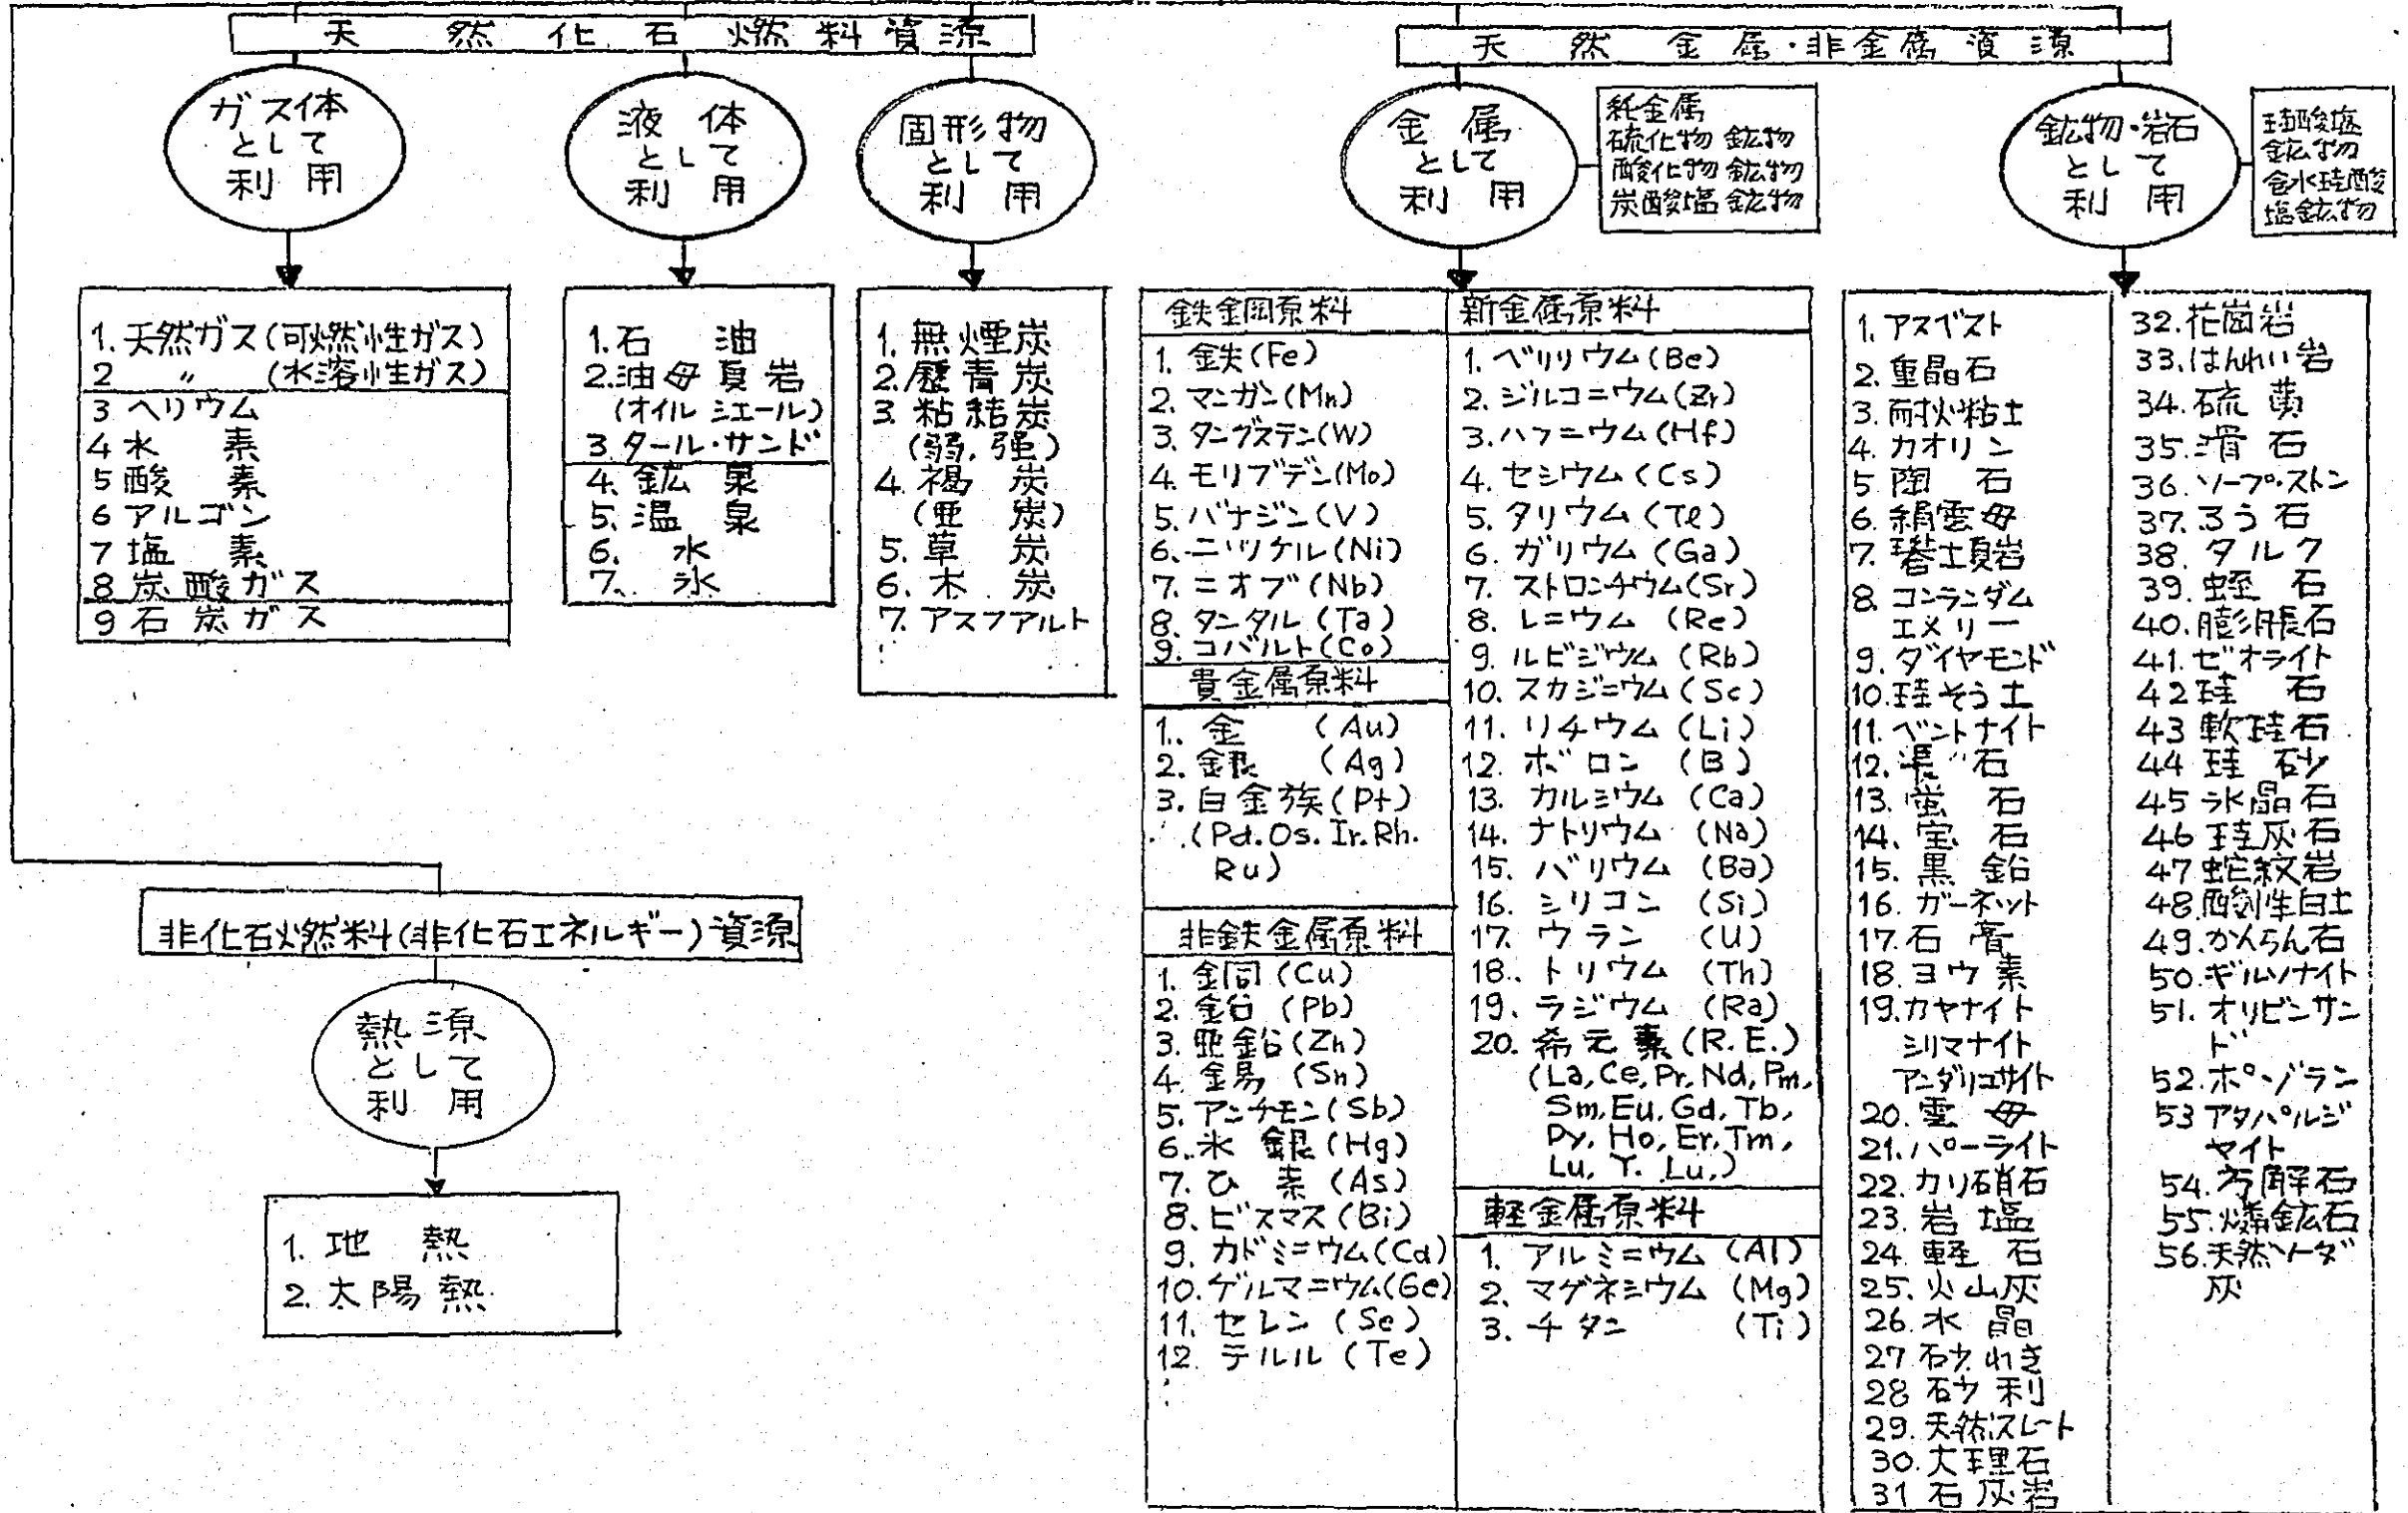 天然化石燃料資源
ガス体
として
利用
1. 天然ガス(可燃性ガス)
2 〃 (水溶性ガス)
3 ヘリウム
4 水素
5 酸素
6 アルゴン
7 塩素
8 炭酸ガス
9 石炭ガス
液体
として
利用
1. 石油
2. 油母頁岩
(オイルシエール)
3. タール・サンド
4. 鉱泉
5. 温泉
6. 水
7. 氷
固形物
として
利用
1. 無煙炭
2. 歴青炭
3. 粘結炭
(弱, 強)
4. 褐炭
(亜炭)
5. 草炭
6. 木炭
7. アスファルト
非化石燃料(非化石エネルギー)資源
熱源
として
利用
1. 地熱
2. 太陽熱
天然金属・非金属資源
金属
として
利用
純金属
硫化物鉱物
酸化物鉱物
炭酸塩鉱物
鉄鋼原料
1. 鉄(Fe)
2. マンガン(Mn)
3. タングステン(W)
4. モリブデン(Mo)
5. バナジン(V)
6. ニッケル(Ni)
7. ニオブ(Nb)
8. タンタル(Ta)
9. コバルト(Co)
貴金属原料
1. 金(Au)
2. 銀(Ag)
3. 白金族(Pt)
(Pd. Os. Ir. Rh.
Ru)
非鉄金属原料
1. 銅(Cu)
2. 鉛(Pb)
3. 亜鉛(Zn)
4. 錫(Sn)
5. アンチモン(Sb)
6. 水銀(Hg)
7. ひ素(As)
8. ビスマス(Bi)
9. カドミニウム(Cd)
10. ゲルマニウム(Ge)
11. セレン(Se)
12. テルル(Te)
新金属原料
1. ベリリウム(Be)
2. ジルコニウム(Zr)
3. ハフニウム(Hf)
4. セシウム(Cs)
5. タリウム(Tl)
6. ガリウム(Ga)
7. ストロンチウム(Sr)
8. レニウム(Re)
9. ルビジウム(Rb)
10. スカジニウム(Sc)
11. リチウム(Li)
12. ボロン(B)
13. カルミウム(Ca)
14. ナトリウム(Na)
15. バリウム(Ba)
16. シリコン(Si)
17. ウラン(U)
18. トリウム(Th)
19. ラジウム(Ra)
20. 希元素(R.E.)
(La, Ce, Pr, Nd, Pm,
Sm, Eu, Gd, Tb,
Dy, Ho, Er, Tm,
Lu, Y. Lu,)
軽金属原料
1. アルミニウム(Al)
2. マグネシウム(Mg)
3. チタン(Ti)
鉱物・岩石
として
利用
珪酸塩
鉱物
含水珪酸
塩鉱物
1. アスベスト
2. 重晶石
3. 耐火粘土
4. カオリン
5 陶石
6. 絹雲母
7. 礬土頁岩
8. コンランダム
エメリー
9. ダイヤモンド
10. 珪そう土
11. ベントナイト
12. 長石
13. 蛍石
14. 宝石
15. 黒鉛
16. ガーネット
17. 石膏
18. ヨウ素
19. カヤナイト
シリマナイト
アンダリュサイト
20. 雲母
21. パーライト
22. カリ硝石
23. 岩塩
24. 軽石
25. 火山灰
26. 水晶
27 砂れき
28 砂利
29. 天然スレート
30. 大理石
31 石灰岩
32. 花崗岩
33. はんれい岩
34. 硫黄
35. 滑石
36. ソープ・ストン
37. ろう石
38. タルク
39. 蛭石
40. 膨脹石
41. ゼオライト
42 珪石
43 軟珪石
44 珪砂
45 氷晶石
46 珪灰石
47 蛇紋岩
48. 酸性白土
49. かんらん石
50. ギルソナイト
51. オリビンサン
ド
52. ポゾラン
53 アタパルジ
ャイト
54. 方解石
55. 燐鉱石
56. 天然ソーダ
灰